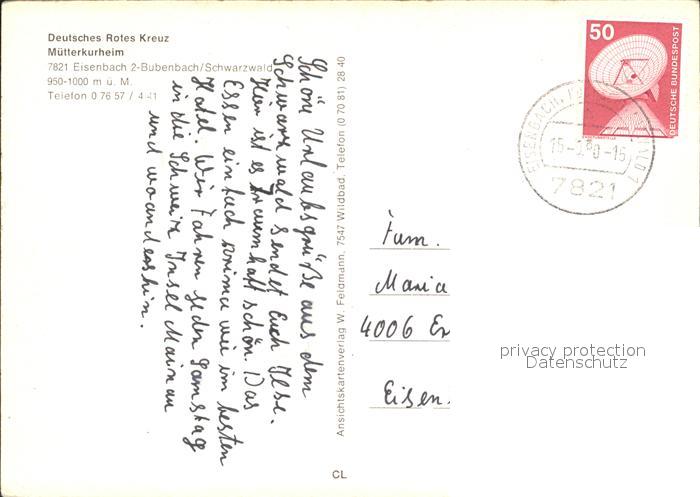 Deutsches Rotes Kreuz
Mütterkurheim
7821 Eisenbach 2-Bubenbach/Schwarzwald
950-1000 m ü. M.
Telefon 0 76 57 / 4 41
Schöne Urlaubsgrüße aus dem
Schwarzwald sendet Euch Ilse.
Hier ist es traumhaft schön. Das
Essen einfach prima wie im besten
Hotel. Wir fahren jeden Samstag
in die Schweiz Insel Mainau
und woandershin.
Ansichtskartenverlag W. Feldmann, 7547 Wildbad, Telefon (0 70 81) 28 40
CL
50
DEUTSCHE BUNDESPOST
EISENBACH
7821
Fam.
Maria
4006 Er
Eisen.
privacy protection
Datenschutz